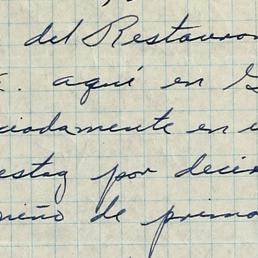 del Restauran
. aquí en
ciadamente en
estoy por decir
de primo